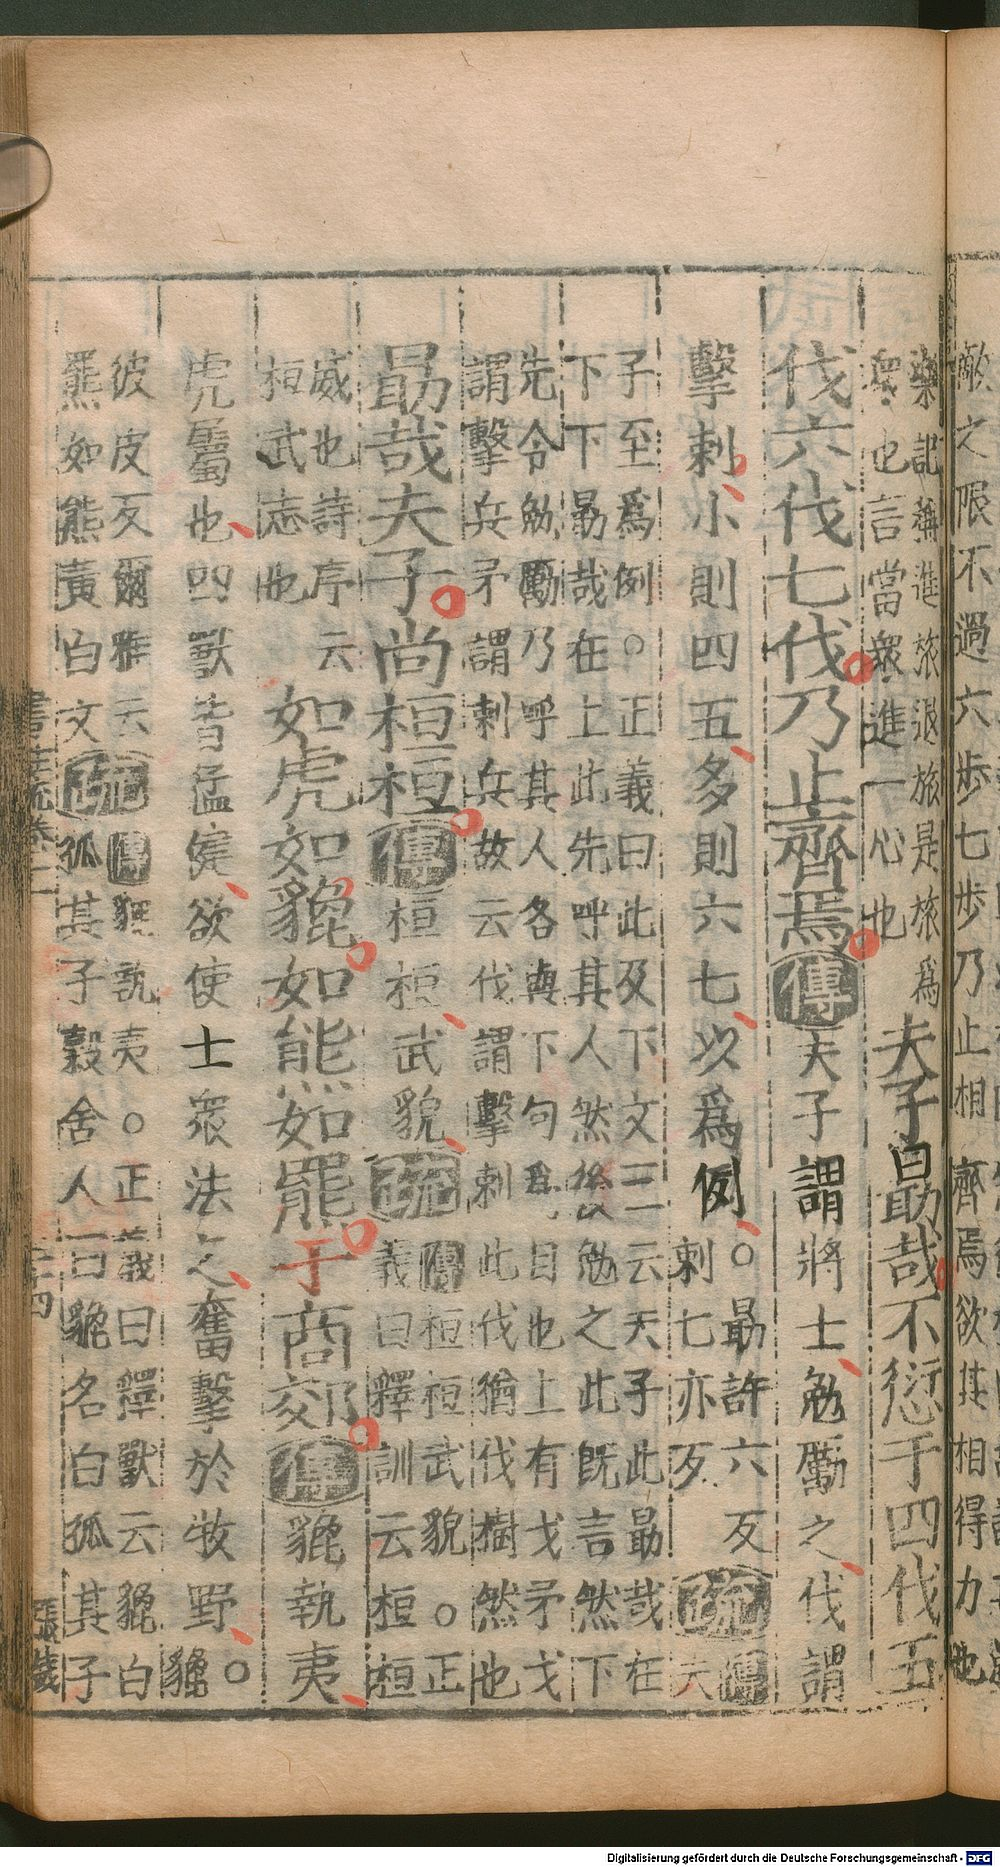 敵之限不過六步七步乃止相齊焉欲其相得力也
樂記稱進旅退旅是旅爲
衆也言當衆進一心也
夫子勖哉不愆于四伐五
伐六伐七伐乃止齊焉傳夫子謂將士勉勵之伐謂
擊刺小則四五多則六七以爲例○勖許六反
刺七亦反
疏傳夫
子至爲例○正義曰此及下文三云夫子此勖哉在
下下勖哉在上此先呼其人然後勉之此既言然下
先令勉勵乃呼其人各與下句爲目也上有戈矛戈
謂擊兵矛謂刺兵故云伐謂擊刺此伐猶伐樹然也
勖哉夫子尚桓桓傳桓桓武貌疏傳桓桓武貌○正
義曰釋訓云桓桓
威也詩序云
桓武志也
如虎如貔如熊如羆于商郊傳貔執夷
虎屬也四獸皆猛健欲使士衆法之奮擊於牧野○
貔
彼皮反爾雅云
羆如熊黃白文
疏傳貔執夷○正義曰釋獸云貔白
狐其子豰舍人曰貔名白狐其子
書注疏卷十一
二十四
Digitalisierung gefördert durch die Deutsche Forschungsgemeinschaft - DFG